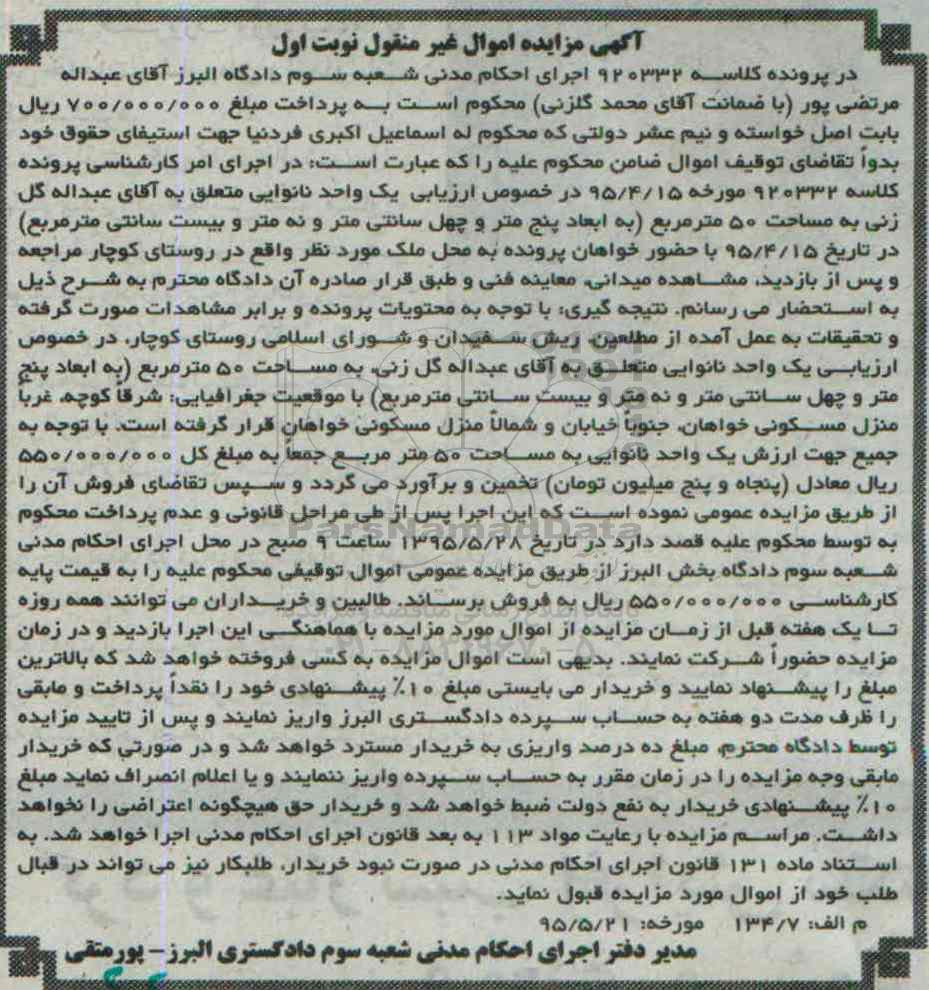 آگهی مزایده اموال غیر منقول نوبت اول
در پرونده کلاسه ۹۲۰۳۳۲ اجرای احکام مدنی شعبه سوم دادگاه البرز آقای عبداله
مرتضی پور (با ضمانت آقای محمد گلزنی) محکوم است به پرداخت مبلغ ۷۰۰/۰۰۰/۰۰۰ ریال
بابت اصل خواسته و نیم عشر دولتی که محکوم له اسماعیل اکبری فردنیا جهت استیفای حقوق خود
بدواً تقاضای توقیف اموال ضامن محکوم علیه را که عبارت است؛ در اجرای امر کارشناسی پرونده
کلاسه ۹۲۰۳۳۲ مورخه ۹۵/۴/۱۵ در خصوص ارزیابی یک واحد نانوایی متعلق به آقای عبداله گل
زنی به مساحت ۵۰ مترمربع (به ابعاد پنج متر و چهل سانتی متر و نه متر و بیست سانتی مترمربع)
در تاریخ ۹۵/۴/۱۵ با حضور خواهان پرونده به محل ملک مورد نظر واقع در روستای کوچار مراجعه
و پس از بازدید، مشاهده میدانی، معاینه فنی و طبق قرار صادره آن دادگاه محترم به شرح ذیل
به استحضار می رسانم. نتیجه گیری: با توجه به محتویات پرونده و برابر مشاهدات صورت گرفته
و تحقیقات به عمل آمده از مطلعین، ریش سفیدان و شورای اسلامی روستای کوچار، در خصوص
ارزیابی یک واحد نانوایی متعلق به آقای عبداله گل زنی، به مساحت ۵۰ مترمربع (به ابعاد پنج
متر و چهل سانتی متر و نه متر و بیست سانتی مترمربع) با موقعیت جغرافیایی: شرقاً کوچه، غرباً
منزل مسکونی خواهان، جنوباً خیابان و شمالاً منزل مسکونی خواهان قرار گرفته است. با توجه به
جمیع جهت ارزش یک واحد نانوایی به مساحت ۵۰ متر مربع جمعاً به مبلغ کل ۵۵۰/۰۰۰/۰۰۰
ریال معادل (پنجاه و پنج میلیون تومان) تخمین و برآورد می گردد و سپس تقاضای فروش آن را
از طریق مزایده عمومی نموده است که این اجرا پس از طی مراحل قانونی و عدم پرداخت محکوم
به توسط محکوم علیه قصد دارد در تاریخ ۱۳۹۵/۵/۲۸ ساعت ۹ صبح در محل اجرای احکام مدنی
شعبه سوم دادگاه بخش البرز از طریق مزایده عمومی اموال توقیفی محکوم علیه را به قیمت پایه
کارشناسی ۵۵۰/۰۰۰/۰۰۰ ریال به فروش برساند. طالبین و خریداران می توانند همه روزه
تا یک هفته قبل از زمان مزایده از اموال مورد مزایده با هماهنگی این اجرا بازدید و در زمان
مزایده حضوراً شرکت نمایند. بدیهی است اموال مزایده به کسی فروخته خواهد شد که بالاترین
مبلغ را پیشنهاد نمایید و خریدار می بایستی مبلغ ۱۰٪ پیشنهادی خود را نقداً پرداخت و مابقی
را ظرف مدت دو هفته به حساب سپرده دادگستری البرز واریز نمایند و پس از تایید مزایده
توسط دادگاه محترم، مبلغ ده درصد واریزی به خریدار مسترد خواهد شد و در صورتی که خریدار
مابقی وجه مزایده را در زمان مقرر به حساب سپرده واریز ننمایند و یا اعلام انصراف نماید مبلغ
۱۰٪ پیشنهادی خریدار به نفع دولت ضبط خواهد شد و خریدار حق هیچگونه اعتراضی را نخواهد
داشت. مراسم مزایده با رعایت مواد ۱۱۳ به بعد قانون اجرای احکام مدنی اجرا خواهد شد. به
استناد ماده ۱۳۱ قانون اجرای احکام مدنی در صورت نبود خریدار، طلبکار نیز می تواند در قبال
طلب خود از اموال مورد مزایده قبول نماید.
م الف: ۱۳۴/۷ مورخه: ۹۵/۵/۲۱
مدیر دفتر اجرای احکام مدنی شعبه سوم دادگستری البرز – پورمتقی
ParsNamadData